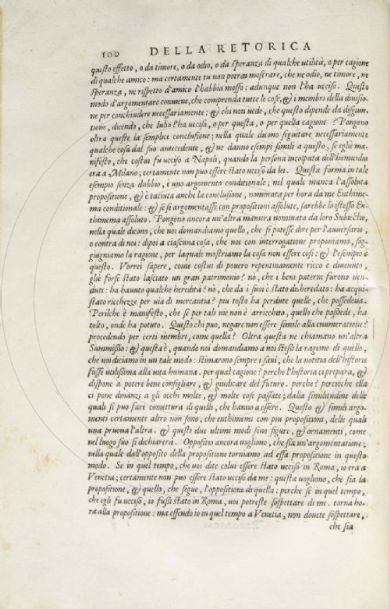 100 DELLA RETORICA
questo effetto, o da timore, o da odio, o da speranza di qualche utilità, o per cagione
di qualche amico: ma certamente tu non potrai mostrare, che ne odio, ne timore, ne
speranza, ne rispetto d'amico l'habbia mosso: adunque non l'ha ucciso. Questo
modo d'argomentare conviene, che comprenda tutte le cose, & i membri della divisio-
ne per conchiudere necessariamente: & chi non vede, che questo dipende da
dicendo, che Iulio l'ha ucciso, o per questa, o per quella cagione? Pongono
oltra queste la semplice conclusione; nella quale dicono seguitare necessariamente
qualche cosa dal suo antecedente, & ne danno esempi simili a questo, se egli ma-
nifesto, che costui fu ucciso a Napoli, quando la persona incolpata dell'homicidio
era a Milano; certamente non puo essere stato ucciso da lei. Questa forma in tale
esempio senza dubbio, è uno argomento conditionale; nel quale manca l'assoluta
propositione, & è taciuta anche la conclusione, nominata per hora da me Enthime-
ma conditionale: & se si argomentasse con propositioni assolute, sarebbe lo istesso En-
thimema assoluto. Pongono ancora un'altra maniera nominata da loro Subiectio,
nella quale dicono, che noi domandiamo quello, che si potesse dire per l'aversario,
o contra di noi: dipoi a ciascuna cosa, che noi con interrogatione proponiamo, sog-
giugniamo la ragione, per laquale mostriamo la cosa non essere cosi: & l'esempio è
questo. Vorrei sapere, come costui di povero repentinamente ricco è divenuto,
gliè forse stato lasciato un gran patrimonio? nò, che i beni paterni furono ven-
duti: ha havuto qualche heredità? nò, che da i suoi è stato disheredato: ha acqui-
stato ricchezze per via di mercantia? piu tosto ha perdute quelle, che possedeva.
Perilche è manifesto, che se per tali vie non è arricchito, quello che possiede, ha
tolto, onde ha potuto. Questo chi puo, negare non essere simile alla enumeratione?
procedendo per certi membri, come quella? Oltra questa ne chiamano un'altra
Summissio: & questa è, quando noi domandiamo a noi stessi la ragione di quello,
che noi diciamo in un tale modo: stimarono sempre i savi, che la notitia dell'historie
fusse utilissima alla vita humana. per qual cagione? perche l'historia ci prepara, &
dispone a potere bene consigliare, & giudicare del futuro. perche? percioche ella
ci pone dinanzi a gli occhi molte, & molte cose passate; dalla similitudine delle
quali si puo fare coniettura di quello, che hanno a essere. Questo & simili argo-
menti certamente altro non sono, che enthimemi con piu propositioni, delle quali
una pruova l'altra. & questi due ultimi modi sono figure, & ornamenti, come
nel luogo suo si dichiarerà. Opposito ancora vogliono, che sia un'argomentatione;
nella quale dall'opposito della propositione torniamo ad essa propositione in questo
modo. Se in quel tempo, che voi dite colui essere stato ucciso in Roma, io era a
Venetia; certamente non puo essere stato ucciso da me: questa vogliono, che sia la
propositione, & quello, che segue, l'oppositione di quella: perche se in quel tempo,
che egli fu ucciso, io fussi stato in Roma, voi potreste sospettare di me. torna ho-
ra alla propositione: ma essendo io in quel tempo a Venetia, non dovete sospettare,
che sia